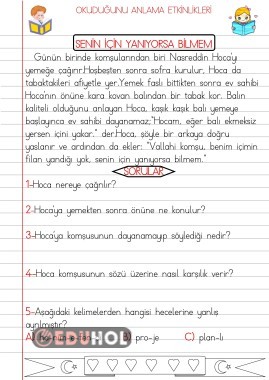 OKUDUĞUNU ANLAMA ETKİNLİKLERİ
SENİN İÇİN YANIYORSA BİLMEM
Günün birinde komşularından biri Nasreddin Hoca'yı
yemeğe çağırır.Hoşbeşten sonra sofra kurulur, Hoca da
tabaktakileri afiyetle yer.Yemek faslı bittikten sonra ev sahibi
Hoca'nın önüne kara kovan balından bir tabak kor. Balın
kaliteli olduğunu anlayan Hoca, kaşık kaşık balı yemeye
başlayınca ev sahibi dayanamaz;"Hocam, eğer balı ekmeksiz
yersen içini yakar." der.Hoca, şöyle bir arkaya doğru
yaslanır ve ardından da ekler: "Vallahi komşu, benim içimin
filan yandığı yok, senin için yanıyorsa bilmem."
SORULAR
1-Hoca nereye çağrılır?
2-Hoca'ya yemekten sonra önüne ne konulur?
3-Hoca'ya komşusunun dayanamayıp söylediği nedir?
4-Hoca komşusunun sözü üzerine nasıl karşılık verir?
5-Aşağıdaki kelimelerden hangisi hecelerine yanlış
ayrılmıştır?
A) pro-je C) plan-lı
EDUHOL